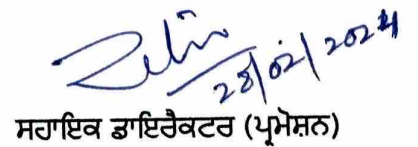 28/02/2024
ਸਹਾਇਕ ਡਾਇਰੈਕਟਰ (ਪ੍ਰਮੋਸ਼ਨ)